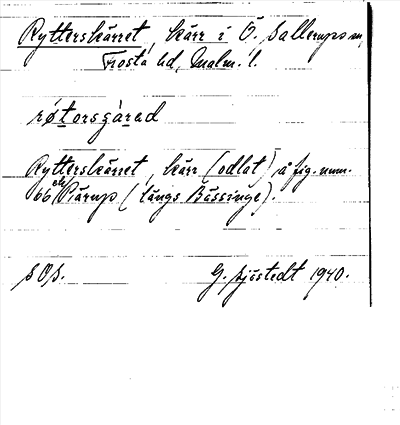 Rytterskärret, kärr i Ö. Sallerups sn,
Frosta hd, Malm. l.
røtorsgàrad
Rytterskärret, kärr (odlat) å fig. num.
66 Piärup (längs Bässinge).
SOS.
G. Sjöstedt 1940.